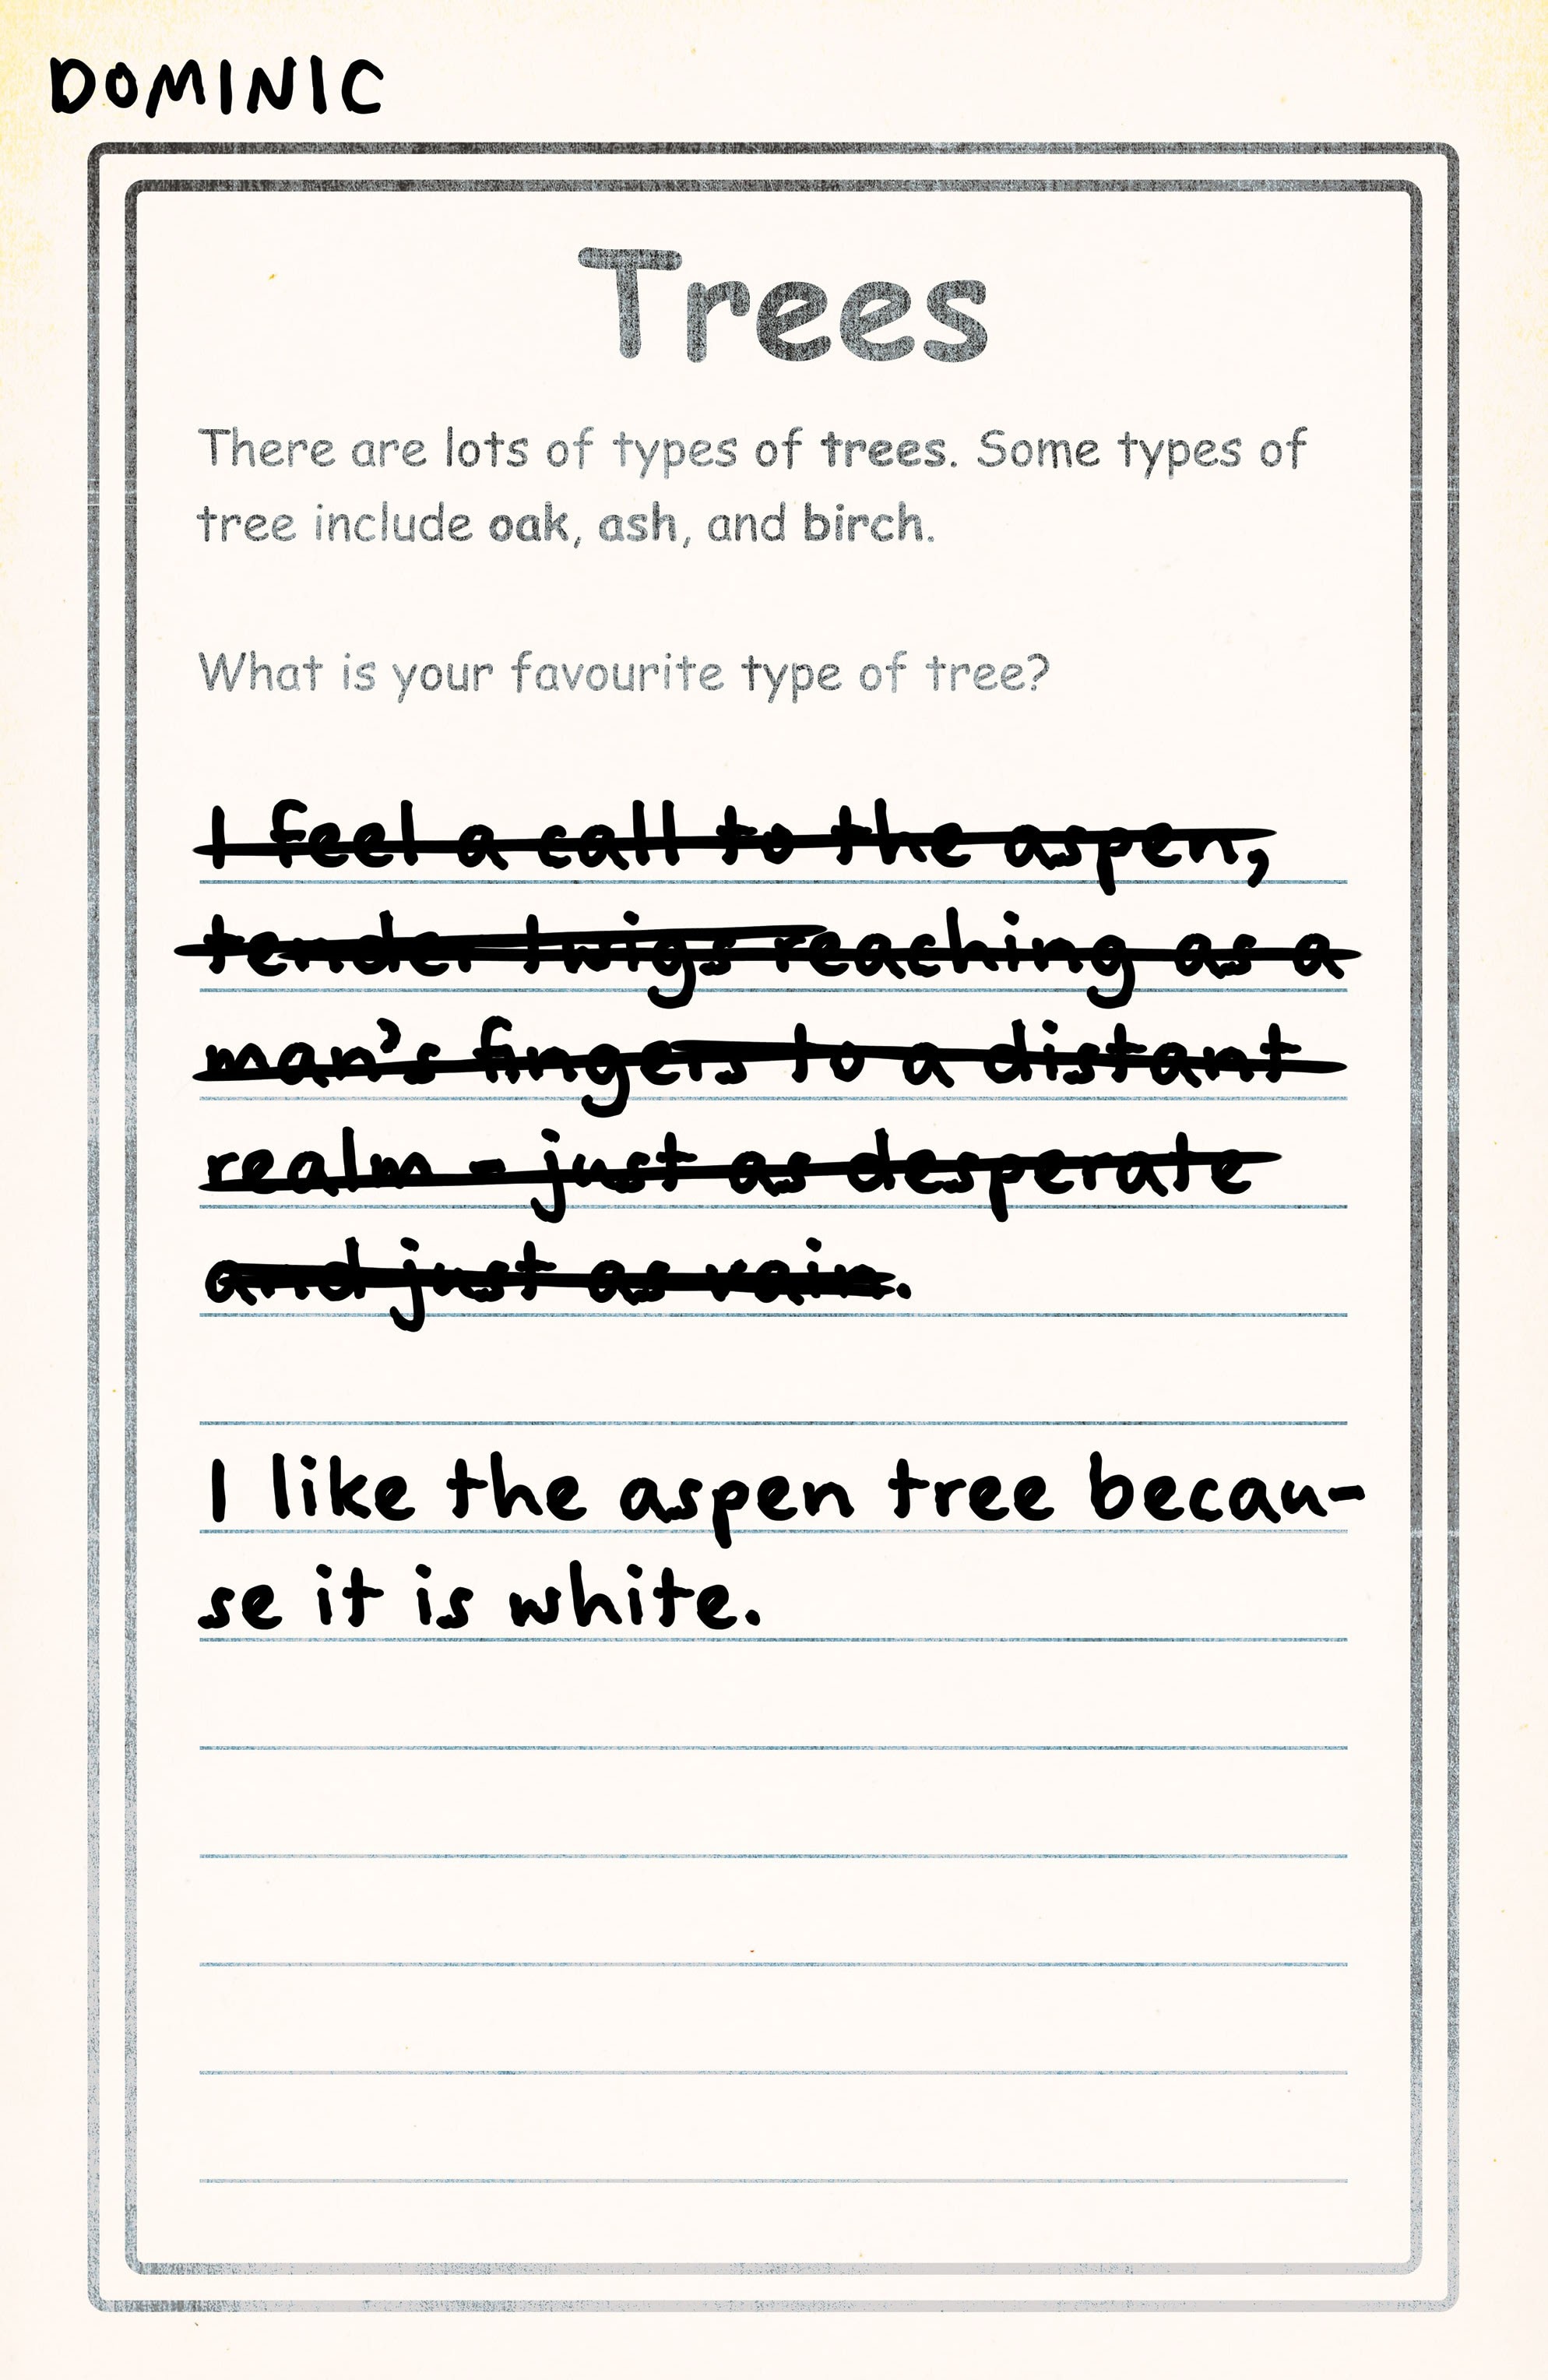 DOMINIC
Trees
There are lots of types of trees. Some types of
tree include oak, ash, and birch.
What is your favourite type of tree?
I feel a call to the aspen,
tender twigs reaching as a
man's fingers to a distant
realm - just as desperate
and just as vain.
I like the aspen tree becau-
se it is white.